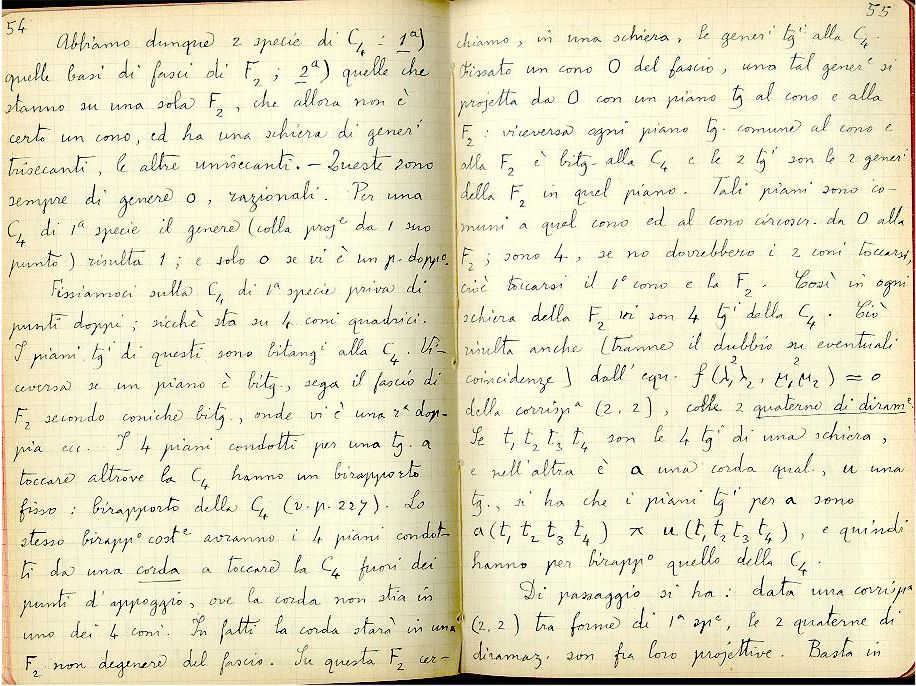 54
Abbiamo dunque 2 specie di C₄ : 1ª)
quelle basi di fasci di F₂ ; 2ª) quelle che
stanno su una sola F₂ , che allora non è
certo un cono, ed ha una schiera di generⁱ
trisecanti, le altre unisecanti. – Queste sono
sempre di genere 0 , razionali. Per una
C₄ di 1ª specie il genere (colla projᵉ da 1 suo
punto) risulta 1 ; e solo 0 se vi è un p. doppᵒ.
Fissiamoci sulla C₄ di 1ª specie priva di
punti doppi ; sicchè sta su 4 coni quadrici.
I piani tgⁱ di questi sono bitangⁱ alla C₄. Vi-
ceversa se un piano è bitg., sega il fascio di
F₂ secondo coniche bitg., onde vi è una rᵃ dop-
pia ecc. I 4 piani condotti per una tg. a
toccare altrove la C₄ hanno un birapporto
fisso : birapporto della C₄ (v. p. 227). Lo
stesso birappᵒ costᵉ avranno i 4 piani condot-
ti da una corda a toccare la C₄ fuori dei
punti d'appoggio, ove la corda non stia in
uno dei 4 coni. In fatti la corda starà in una
F₂ non degenere del fascio. Su questa F₂ cer-
55
chiamo, in una schiera, le generⁱ tgⁱ alla C₄.
Fissato un cono O del fascio, una tal generᶜ si
projetta da O con un piano tg al cono e alla
F₂ : viceversa ogni piano tg. comune al cono e
alla F₂ è bitg. alla C₄ e le 2 tgⁱ son le 2 generⁱ
della F₂ in quel piano. Tali piani sono co-
muni a quel cono ed al cono circoscr. da O alla
F₂ ; sono 4 , se no dovrebbero i 2 coni toccarsi,
cioè toccarsi il 1º cono e la F₂ . Così in ogni
schiera della F₂ vi son 4 tgⁱ della C₄ . Ciò
risulta anche (tranne il dubbio su eventuali
coincidenze) dall' equ. f(λ₁²λ₂ , μ₁²μ₂) = 0
della corrispᵃ (2,2) , colle 2 quaterne di diramᵉ.
Se t₁ t₂ t₃ t₄ son le 4 tgⁱ di una schiera,
e nell'altra è a una corda qual., u una
tg., si ha che i piani tgⁱ per a sono
a(t₁ t₂ t₃ t₄) ⊼ u(t₁ t₂ t₃ t₄) , e quindi
hanno per birappᵒ quello della C₄ .
Di passaggio si ha : data una corrispᵃ
(2,2) tra forme di 1ª spᵉ, le 2 quaterne di
diramaz. son fra loro projettive. Basta in